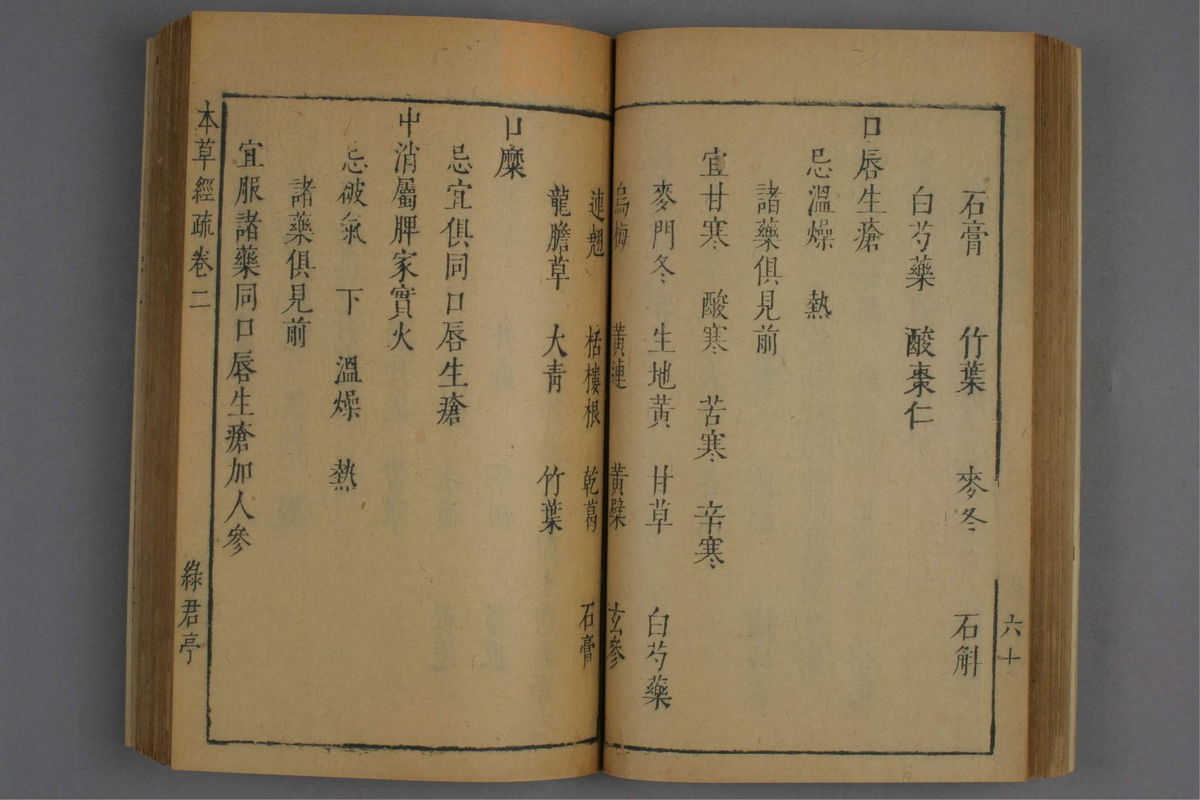 石膏　竹葉　麥冬　石斛
白芍藥　酸棗仁
口唇生瘡
忌溫燥　熱
諸藥俱見前
宜甘寒　酸寒　苦寒　辛寒
麥門冬　生地黃　甘草　白芍藥
烏梅　黃連　黃檗　玄參
連翹　栝樓根　乾葛　石膏
龍膽草　大青　竹葉
口糜
忌宜俱同口唇生瘡
中消屬脾家實火
忌破氣　下　溫燥　熱
諸藥俱見前
宜服諸藥同口唇生瘡加人參
本草經疏卷二
綠君亭
六十